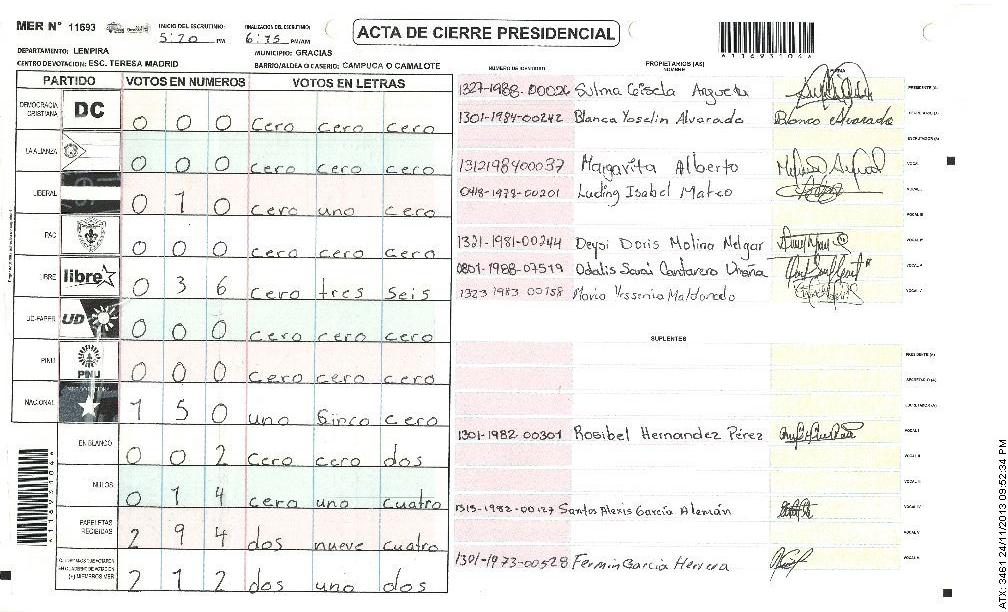 MER N° 11693
INICIO DEL ESCRUTINIO: 5:20 PM
FINALIZACION DEL ESCRUTINIO: 6:75 PM/AM
ACTA DE CIERRE PRESIDENCIAL
A11693104A
DEPARTAMENTO: LEMPIRA
MUNICIPIO: GRACIAS
CENTRO DE VOTACION: ESC. TERESA MADRID
BARRIO/ALDEA O CASERIO: CAMPUCA O CAMALOTE
PARTIDO VOTOS EN NUMEROS VOTOS EN LETRAS
DEMOCRACIA CRISTIANA DC 0 0 0 cero cero cero
LA ALIANZA 0 0 0 cero cero cero
LIBERAL 0 1 0 cero uno cero
PAC 0 0 0 cero cero cero
LIBRE libre 0 3 6 cero tres seis
UD-FAPER UD 0 0 0 cero cero cero
PINU PINU 0 0 0 cero cero cero
NACIONAL 1 5 0 uno Sinco cero
EN BLANCO 0 0 2 cero cero dos
NULOS 0 1 4 cero uno cuatro
PAPELETAS RECIBIDAS 2 9 4 dos nueve cuatro
(+) MIEMBROS MER 2 1 2 dos uno dos
NUMERO DE IDENTIDAD
PROPIETARIOS (AS)
NOMBRE
FIRMA
1327-1988-00026 Sulma Gisela Argueta PRESIDENTE (A)
1301-1984-00242 Blanca Yoselin Alvarado Blanca Alvarado SECRETARIO (A)
ESCRUTADOR (A)
1312198400037 Margarita Alberto VOCAL I
0418-1978-00201 Luding Isabel Mateo VOCAL II
VOCAL III
1321-1981-00244 Deysi Doris Molina Melgar VOCAL IV
0801-1988-07519 Odalis Sarai Cantarero VOCAL V
1323 1983 00158 Maria Yessenia Maldonado VOCAL VI
SUPLENTES
PRESIDENTE (A)
SECRETARIO (A)
ESCRUTADOR (A)
1301-1982-00301 Rosibel Hernandez Pérez VOCAL I
VOCAL II
VOCAL III
1315-1982-00127 Santos Alexis García Alemán VOCAL IV
VOCAL V
1301-1973-00528 Fermin Garcia Herrera VOCAL VI
A11693104A
ATX: 3461 24/11/2013 09:52:34 PM